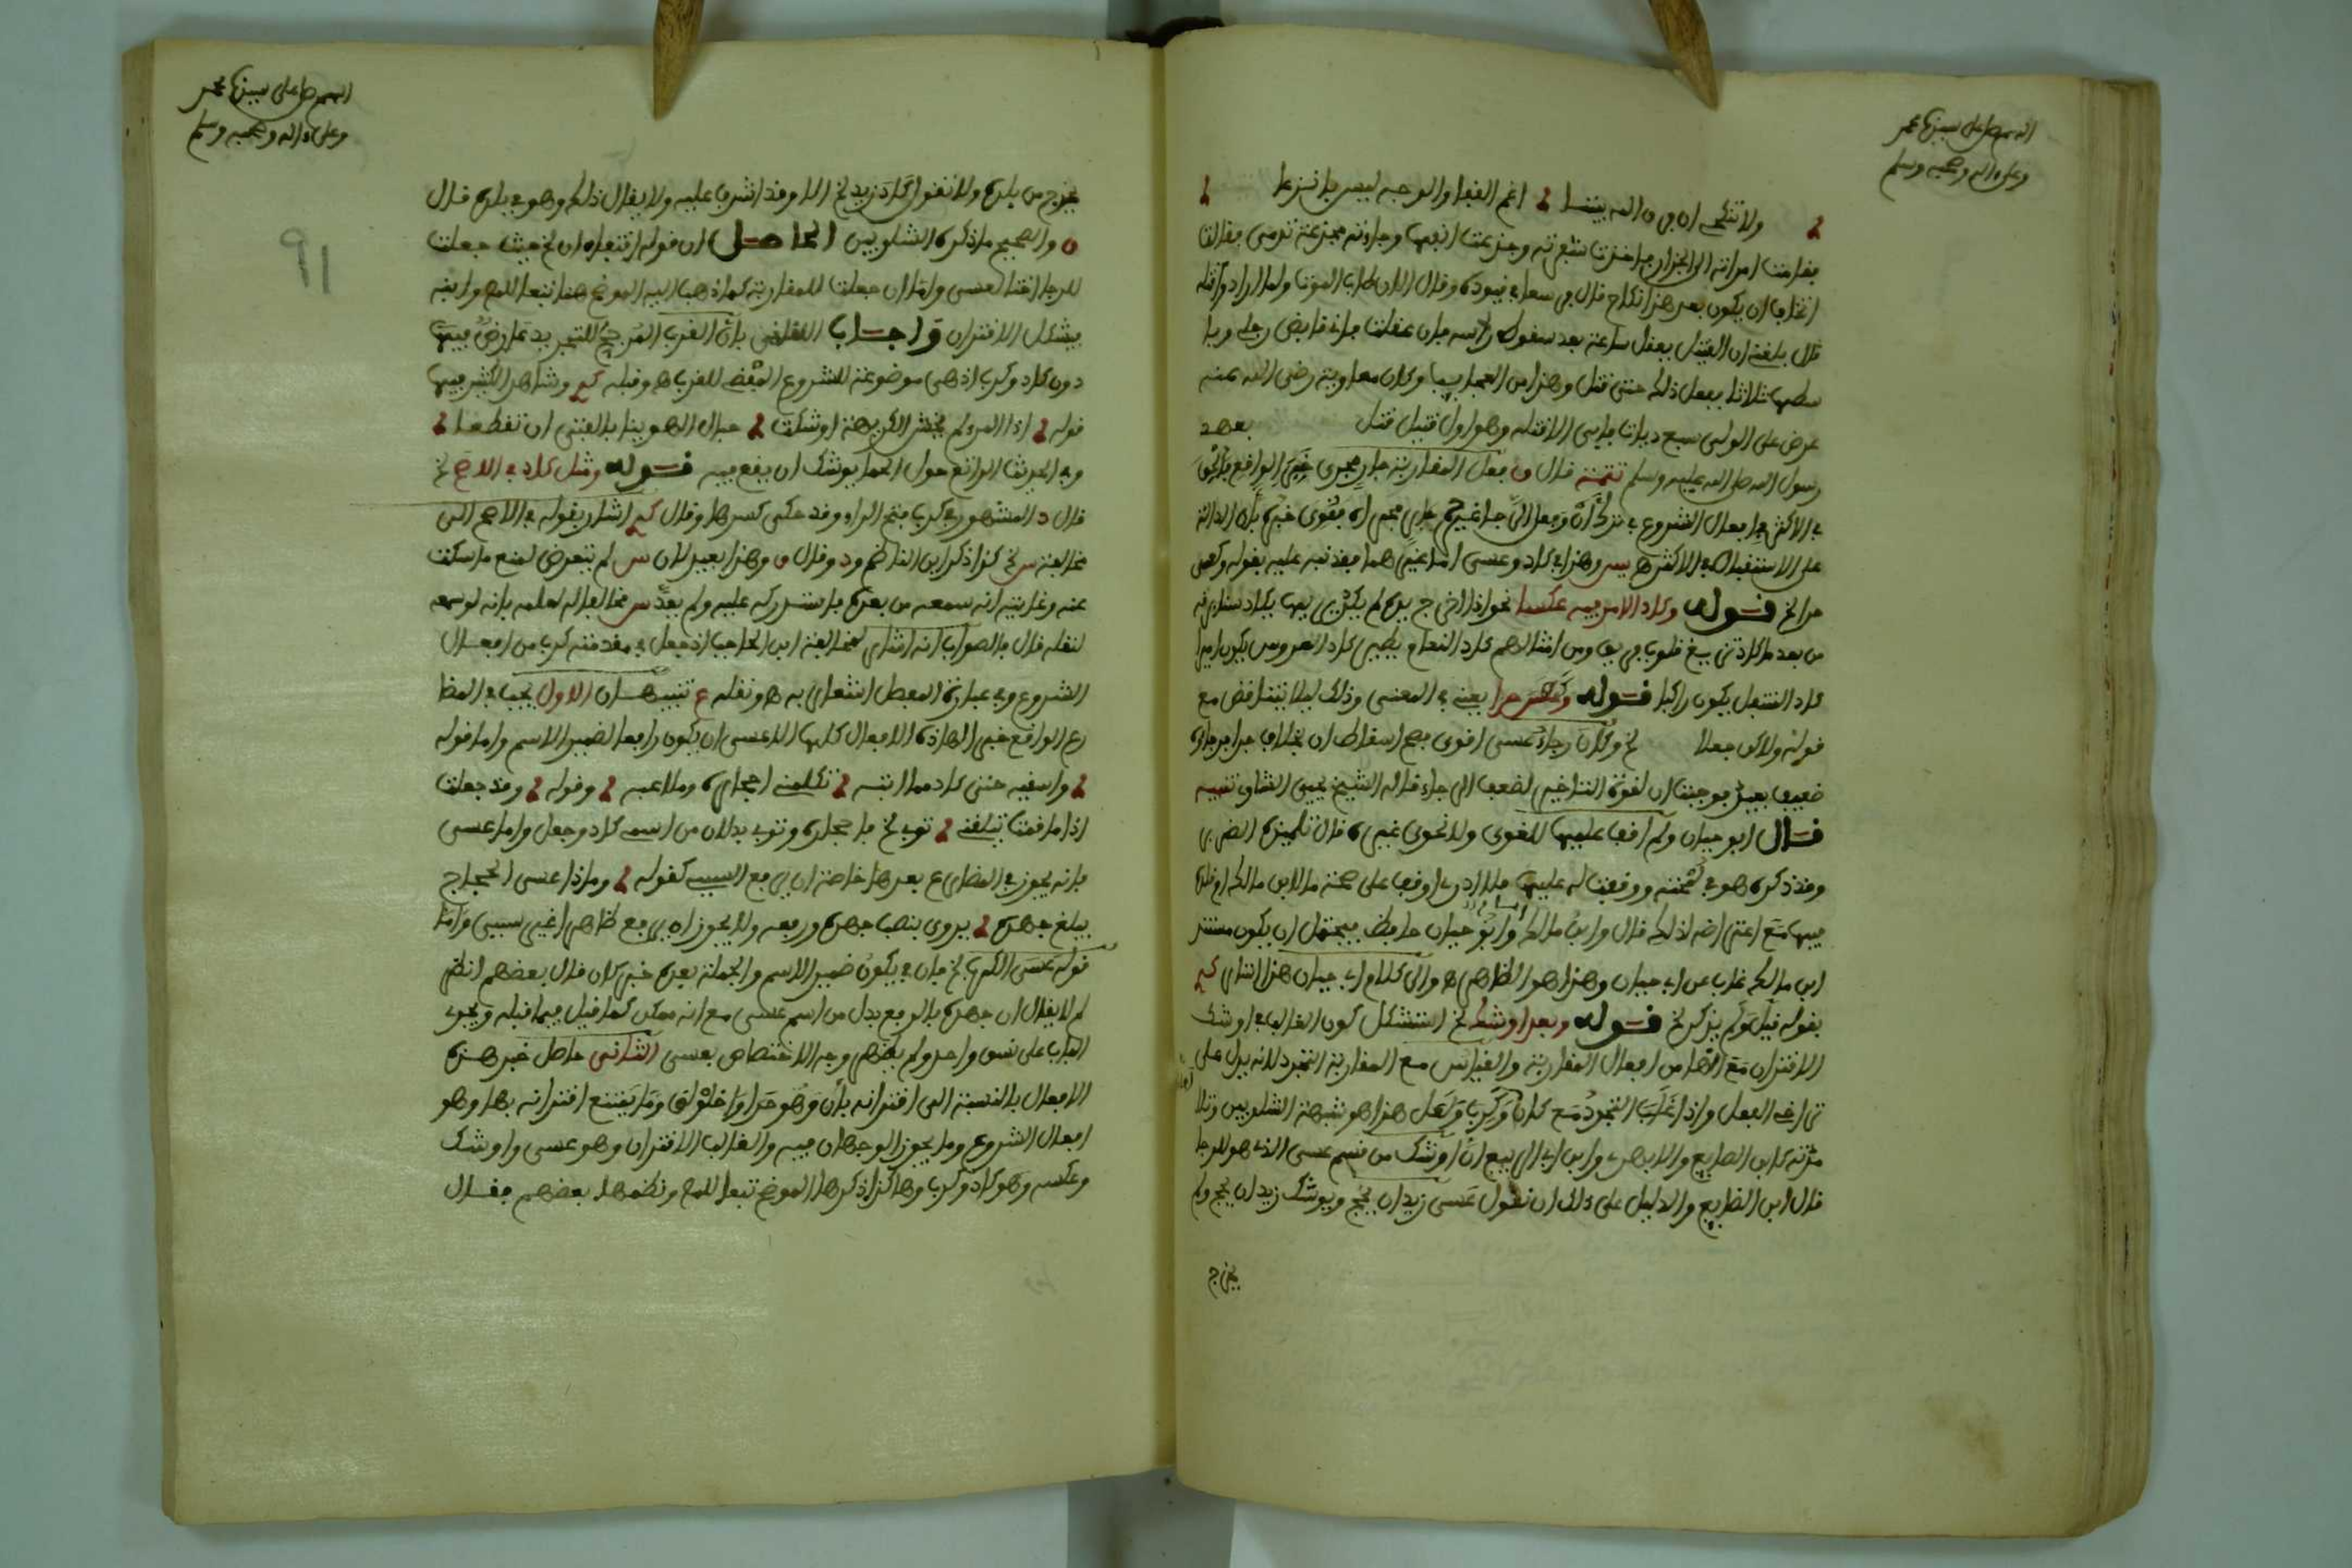 اللهم صل على سيدنا محمد
وعلى ءاله وصحبه وسلم
ولا تنكحي ان فرق الله بيننا اغم القفا والوجه ليس بانزعا
امراته الى الجزار فاخذت شفرته وجزعت انفها وجاءته مجزعة تدمى فقالت
اتخاف ان يكون بعد هذا نكاح قال في قيوده وقال الان طاب الموت ولما اراد قتله
قال بلغني ان القتيل يعقل ساعة بعد سقوط راسه فان عقلت فاني قابض رجلي وبا
سطها ثلاثا ففعل ذلك حتى قتل وهذا من العجايب وكان معاوية رضي الله عنه
عرض على الولي سبع ديات فابى الا قتله وهو اول قتيل قتل بعهد
رسول الله صلى الله عليه وسلم تتمة قال ق فعل المقاربة جار مجرى خبره الواقع
في الاكثر افعال الشروع في ترك ان
على الاستقبال في الاكثر هـ يس وهذا في كاد وعسى اما غيرهما فقد نبه عليه بقوله وكعسى
حرا لخ قوله وكاد الامر فيه عكسا نحو اذا اخرج يده لم يكد يريها يكاد سنا برقه
من بعد ما كاد تزيغ قلوب فريق ومن امثالهم كاد النعام يطير كاد العروس يكون اميرا
كاد المنتعل يكون راكبا قوله وكعسى حرا يعني في المعنى وذلك ليلا يتناقض مع
قوله ولاكن جعلا لخ وكان رجاء عسى اقوى فصح اسقاط ان بخلاف حرا فرجاؤه
ضعيف بعيد فوجبت ان لقوة التراخي لضعف الرجاء قاله الشيخ يحيى الشاوي تنبيه
قال ابو حيان ولم اقف عليها للغوي ولا نحوي غيره قال تلميذه
وقد ذكره هو في لمحته ووقفت له عليها فلا ادري اوقف على صحة ما لابن مالك او قلده
فيها مع اعتراضه لذلك قال وابن مالك وابو حيان حافظ فيحتمل ان يكون مستند
ابن مالك غاب عن ابي حيان وهذا هو الظاهر هـ والى كلام ابي حيان هذا اشار
بقوله قيل ولم يذكر لخ قوله وبعد اوشك لخ استشكل كون الغالب في اوشك
الاقتران مع انها من افعال المقاربة والقياس مع المقاربة التجرد لانه يدل على
تراخي الفعل واذا غلب التجرد مع كاد وكرب هذا هو شبهة الشلوبين وتلا
مذته كابن الضايع والابدي وابن ابي الربيع ان اوشك من قسم عسى الذي هو للرجا
قال ابن الضايع والدليل على ذلك ان تقول عسى زيد ان يحج ويوشك زيد ان يحج ولم
يخرج
اللهم صل على سيدنا محمد
وعلى ءاله وصحبه وسلم
91
يخرج من بلده ولا تقول كاد زيد لخ الا وقد اشرف عليه ولا يقال ذلك وهو في بلده قال
ق والصحيح ما ذكره الشلوبين الحاصل ان قوله اقتعاده ان لخ حيث جعلت
للرجا اخت لعسى واما ان جعلت للمقاربة كما ذهب اليه الموضح هنا تبعا للمص وابنه
فيشكل الاقتران واجاب اللقاني بان القرب المرجح للتجريد عارض فيها
دون كاد وكرب اذ هي موضوعة للشروع المفضي للقرب هـ وقبله وشاهد الكثير فيها
قوله اذا المرء لم يخش الكريهة اوشكت حبال الهوينا بالفتى ان تقطعا
وفي الحديث الراتع حول الحما يوشك ان يقع فيه قوله ومثل كاد في الاصح لخ
قال د المشهور في كرب فتح الراء وقد حكى كسرها وقال اشار بقوله في الاصح الى
مخالفة س لخ كذا ذكر ابن الناظم ود وقال ق وهذا بعيد لان س لم يتعرض لمنع ما سكت
عنه وغايته انه سمعه من بعده فاستدركه عليه ولم يعد س مخالفا له لعلمه بانه لو سمعه
لنقله قال فالصواب انه اشار لمخالفة ابن الحاجب اذ جعل في مقدمته كرب من افعال
الشروع وفي عبارة المفصل اشعار به هـ ونقله ع تنبيهان الاول يجب في المضا
رع الواقع خبرا لهاذه الافعال كلها الا عسى ان يكون رافعا لضمير الاسم واما قوله
واسقيه حتى كاد مما ابثه تكلمني احجاره وملاعبه وقوله وقد جعلت
اذا ما قمت يثقلني ثوبي لخ فاحجاره وثوبي بدلان من اسمي كاد وجعل واما عسى
فانه يجوز في المضارع بعدها خاصة ان يرفع السببي كقوله وماذا عسى الحجاج
يبلغ جهده يروى بنصب جهده ورفعه ولا يجوز ان يرفع ظاهرا غير سببي واما
قوله عسى الكرب لخ فان في يكون ضمير الاسم والجملة بعده خبر كان قال بعضهم انظر
لم لا يقال ان جهده بالرفع بدل من اسم عسى مع انه ممكن كما قيل فيما قبله ويجري
الباب على نسق واحد ولم يظهر وجه الاختصاص بعسى الثاني حاصل خبر هذه
الافعال بالنسبة الى اقترانه بان وهو حرا واخلولق وما يمتنع اقترانه بها وهو
افعال الشروع وما يجوز الوجهان فيه والغالب الاقتران وهو عسى واوشك
وعكسه وهو كاد وكرب وهاكذا ذكرها الموضح تبعا للمص ونظمها بعضهم فقال